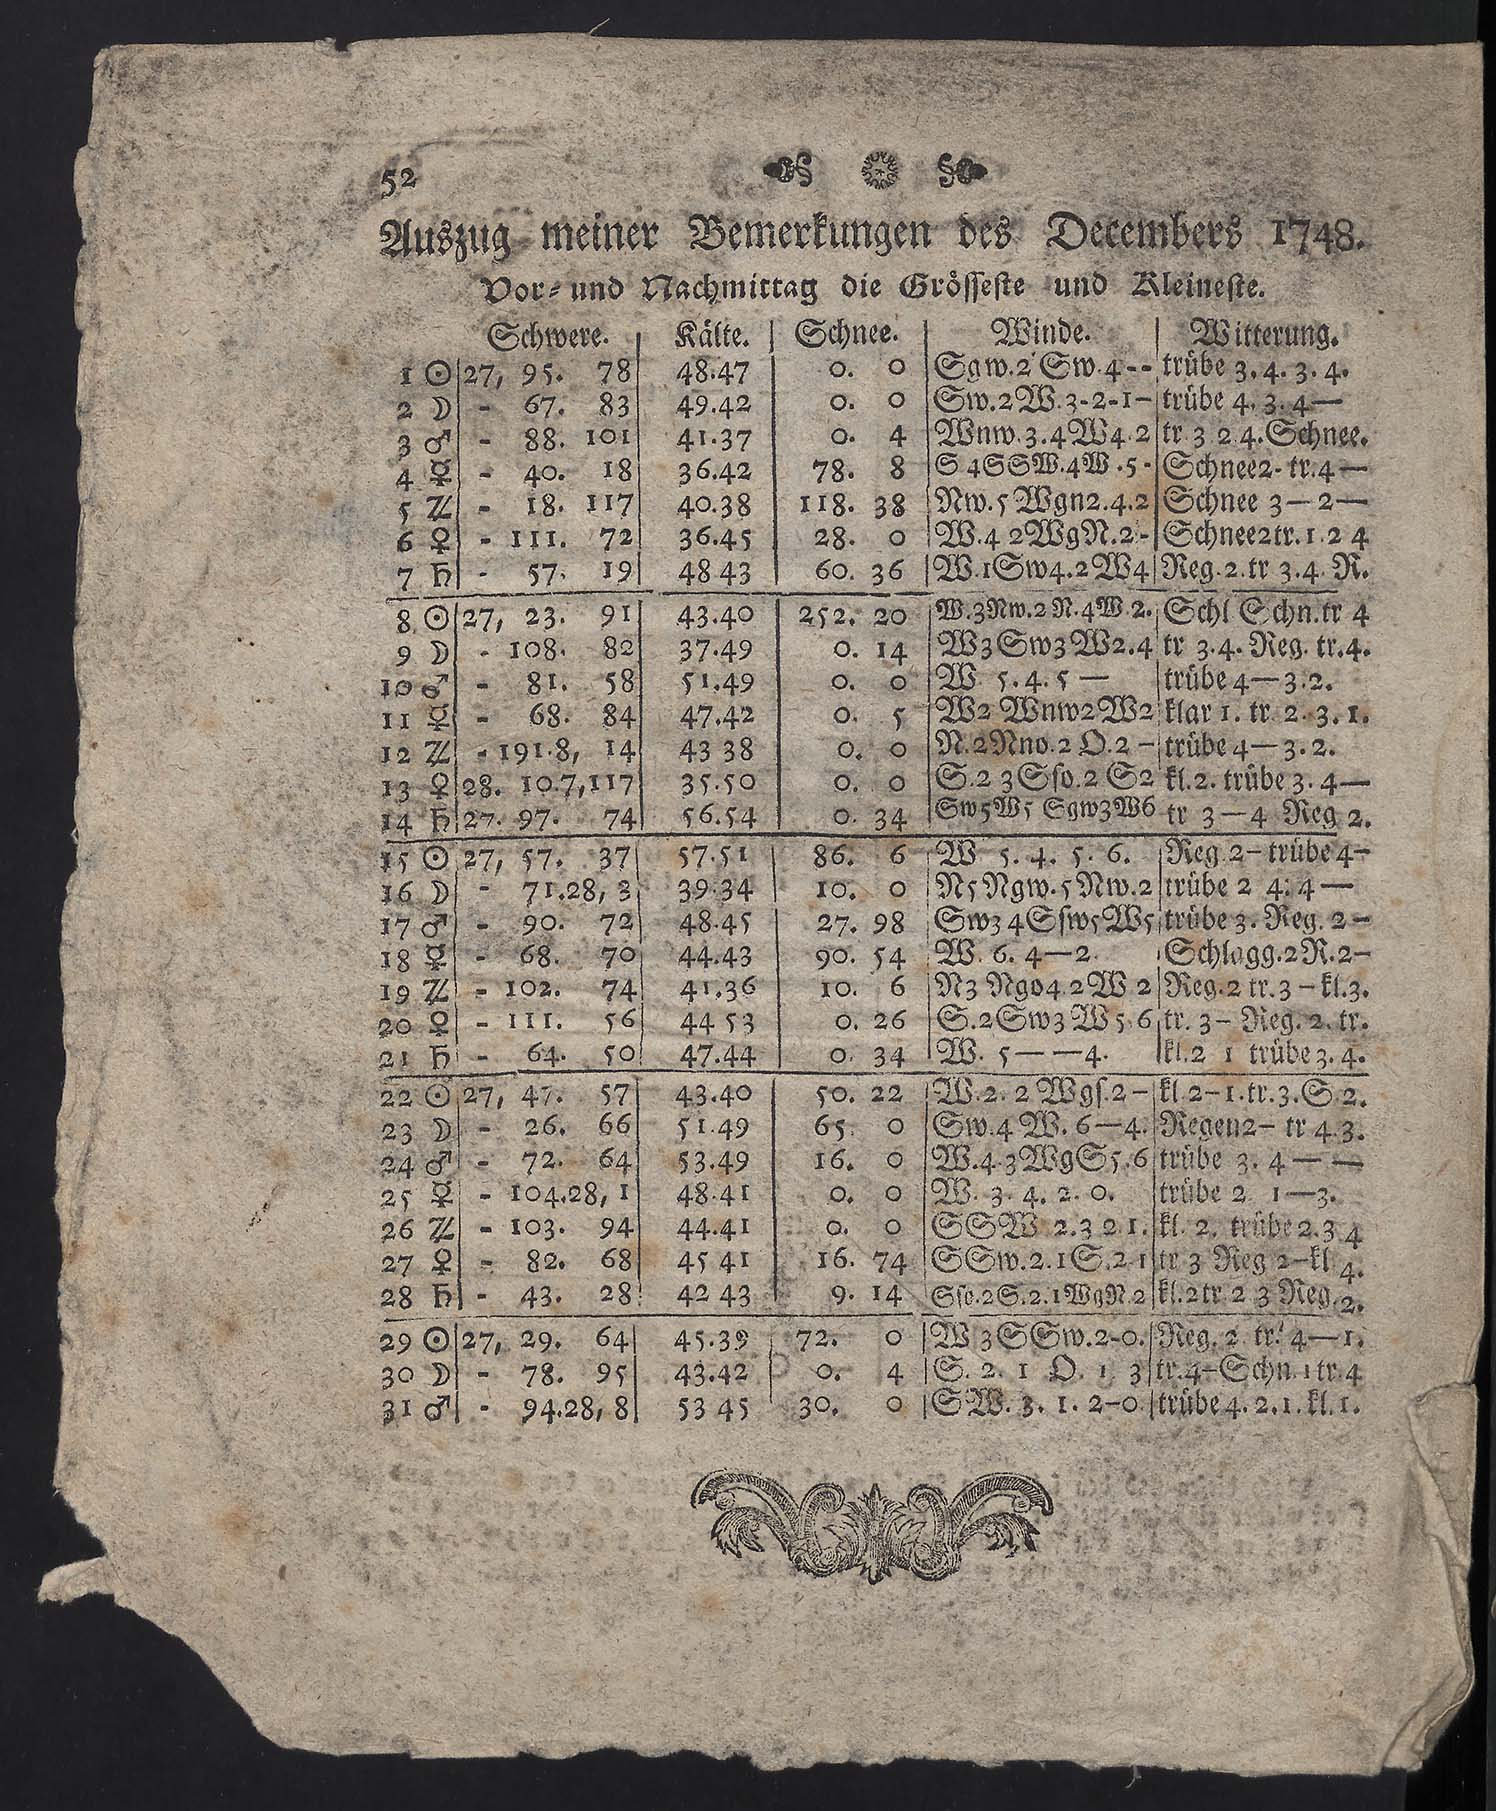 52
Auszug meiner Bemerkungen des Decembers 1748.
Vor- und Nachmittag die Grösseste und Kleineste.
Schwere. | Kälte. | Schnee. | Winde. | Witterung.
1 ☉ | 27, 95. 78 | 48.47 | 0. 0 | Sgw.2 Sw.4-- | trübe 3.4.3.4.
2 ☽ | - 67. 83 | 49.42 | 0. 0 | Sw.2W.3-2-1- | trübe 4.3.4—
3 ♂ | - 88. 101 | 41.37 | 0. 4 | Wnw.3.4W4.2 | tr 3 2 4.Schnee.
4 ☿ | - 40. 18 | 36.42 | 78. 8 | S 4SSW.4W.5- | Schnee2- tr.4—
5 ♃ | - 18. 117 | 40.38 | 118. 38 | Nw.5 Wgn2.4.2 | Schnee 3—2—
6 ♀ | - 111. 72 | 36.45 | 28. 0 | W.4 2WgN.2- | Schnee2tr.1.2 4
7 ♄ | - 57. 19 | 48 43 | 60. 36 | W.1Sw4.2W4 | Reg.2.tr 3.4.R.
8 ☉ | 27, 23. 91 | 43.40 | 252. 20 | W.3Nw.2N.4W.2. | Schl Schn.tr 4
9 ☽ | - 108. 82 | 37.49 | 0. 14 | W3Sw3W2.4 | tr 3.4. Reg. tr.4.
10 ♂ | - 81. 58 | 51.49 | 0. 0 | W. 5.4.5 — | trübe 4—3.2.
11 ☿ | - 68. 84 | 47.42 | 0. 5 | W2 Wnw2W2 | klar 1. tr. 2.3.1.
12 ♃ | - 191.8, 14 | 43 38 | 0. 0 | N.2Nno.2 O.2 — | trübe 4—3.2.
13 ♀ | 28. 10.7,117 | 35.50 | 0. 0 | S.2 3Sſo.2 S2 | kl.2. trübe 3.4—
14 ♄ | 27. 97. 74 | 56.54 | 0. 34 | Sw5W5 Sgw3W6 | tr 3—4 Reg 2.
15 ☉ | 27, 57. 37 | 57.51 | 86. 6 | W 5.4.5.6. | Reg.2- trübe 4-
16 ☽ | - 71.28, 3 | 39.34 | 10. 0 | N5Ngw.5Nw.2 | trübe 2 4.4—
17 ♂ | - 90. 72 | 48.45 | 27. 98 | Sw3 4Sſw5W5 | trübe 3. Reg. 2-
18 ☿ | - 68. 70 | 44.43 | 90. 54 | W. 6.4—2. | Schlagg.2R.2-
19 ♃ | - 102. 74 | 41.36 | 10. 6 | N3 Ngo4.2W 2 | Reg.2 tr.3 - kl.3.
20 ♀ | - 111. 56 | 44 53 | 0. 26 | S.2Sw3 W5.6 | tr. 3- Reg. 2. tr.
21 ♄ | - 64. 50 | 47.44 | 0. 34 | W. 5——4. | kl.2 1 trübe 3.4.
22 ☉ | 27, 47. 57 | 43.40 | 50. 22 | W.2.2 Wgſ.2- | kl 2-1.tr.3.S 2.
23 ☽ | - 26. 66 | 51.49 | 65. 0 | Sw.4 W.6—4. | Regen2- tr 4.3.
24 ♂ | - 72. 64 | 53.49 | 16. 0 | W.4.3WgS5.6 | trübe 3.4——
25 ☿ | - 104.28, 1 | 48.41 | 0. 0 | W. 3.4.2.0. | trübe 2 1—3.
26 ♃ | - 103. 94 | 44.41 | 0. 0 | SSW 2.3 2 1. | kl. 2. trübe 2.3 4
27 ♀ | - 82. 68 | 45 41 | 16. 74 | SSw.2.1S.2 1 | tr 3 Reg 2-kl 4.
28 ♄ | - 43. 28 | 42 43 | 9. 14 | Sſo.2S.2.1WgN.2 | kl.2tr 2 3 Reg.2.
29 ☉ | 27, 29. 64 | 45.39 | 72. 0 | W 3SSw.2-0. | Reg. 2. tr. 4—1.
30 ☽ | - 78. 95 | 43.42 | 0. 4 | S. 2. 1 O. 1. 3 | tr.4-Schn.1tr.4
31 ♂ | - 94.28, 8 | 53 45 | 30. 0 | SW. 3. 1. 2-0 | trübe 4.2.1.kl.1.